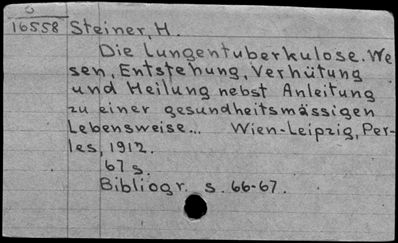 O
16558 Steiner, H.
Die Lungentuberkulose. We-
sen, Entstehung, Verhütung
und Heilung nebst Anleitung
zu einer gesundheitsmässigen
Lebensweise... Wien-Leipzig, Per-
les, 1912.
67 s.
Bibliogr. s. 66-67.